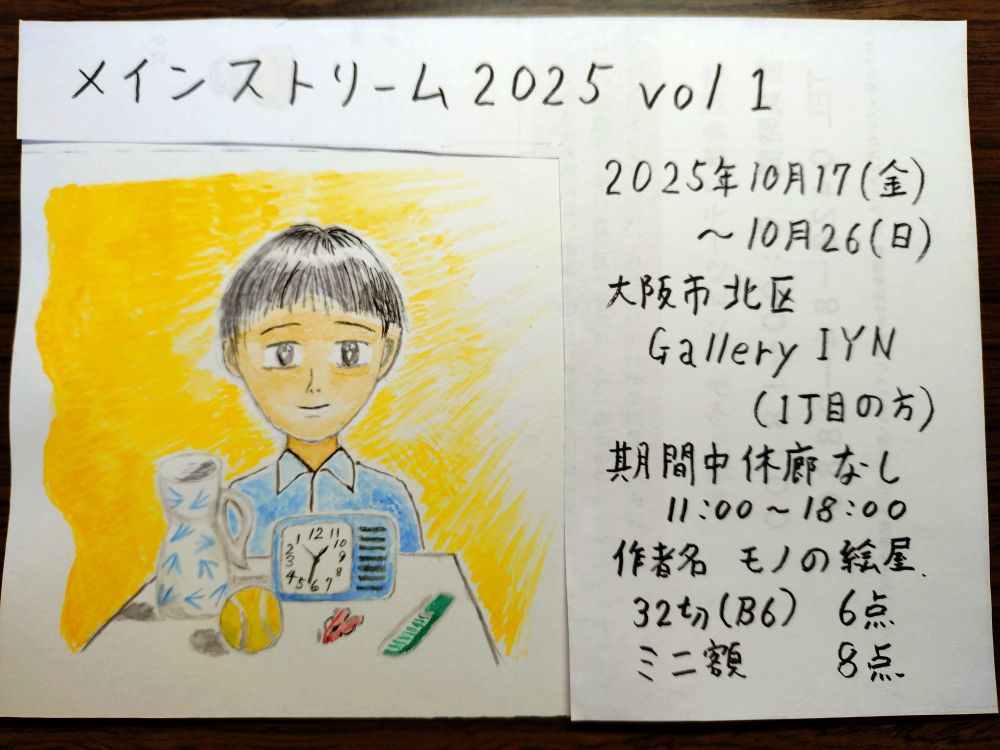 メインストリーム2025 vol 1
2025年10月17(金)
～10月26(日)
大阪市北区
Gallery IYN
(1丁目の方)
期間中休廊なし
11:00～18:00
作者名 モノの絵屋
32切(B6) 6点
ミニ額 8点
12
11
10
9
8
7
6
5
4
3
2
1